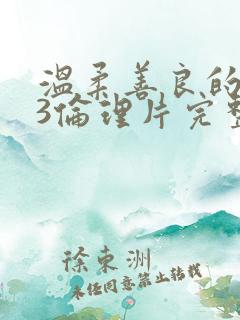 溫柔善良的
3倫理片完整
徐東洲
未经同意禁止转载